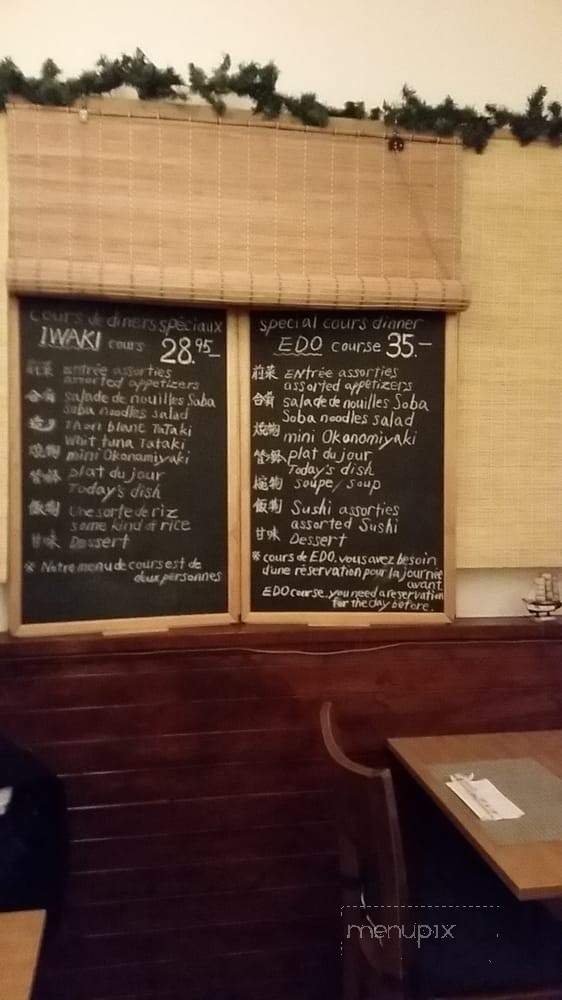 cours de diners spéciaux
IWAKI cours 28.95
前菜 Entrée assorties
assorted appetizers
salade de nouilles Soba
Soba noodles salad
Thon blanc Tataki
Whit tuna Tataki
焼物 mini Okonomiyaki
plat du jour
Today's dish
飯物 Une sorte de riz
some kind of rice
甘味 Dessert
※ Notre menu de cours est de
deux personnes
special cours dinner
EDO course 35.-
前菜 Entrée assorties
assorted appetizers
salade de nouilles Soba
Soba noodles salad
焼物 mini Okonomiyaki
plat du jour
Today's dish
soupe / soup
飯物 Sushi assorties
assorted Sushi
甘味 Dessert
※ cours de EDO. vous avez besoin
d'une réservation pour la journée
avant
EDO course.. you need a reservation
for the day before.
menupix